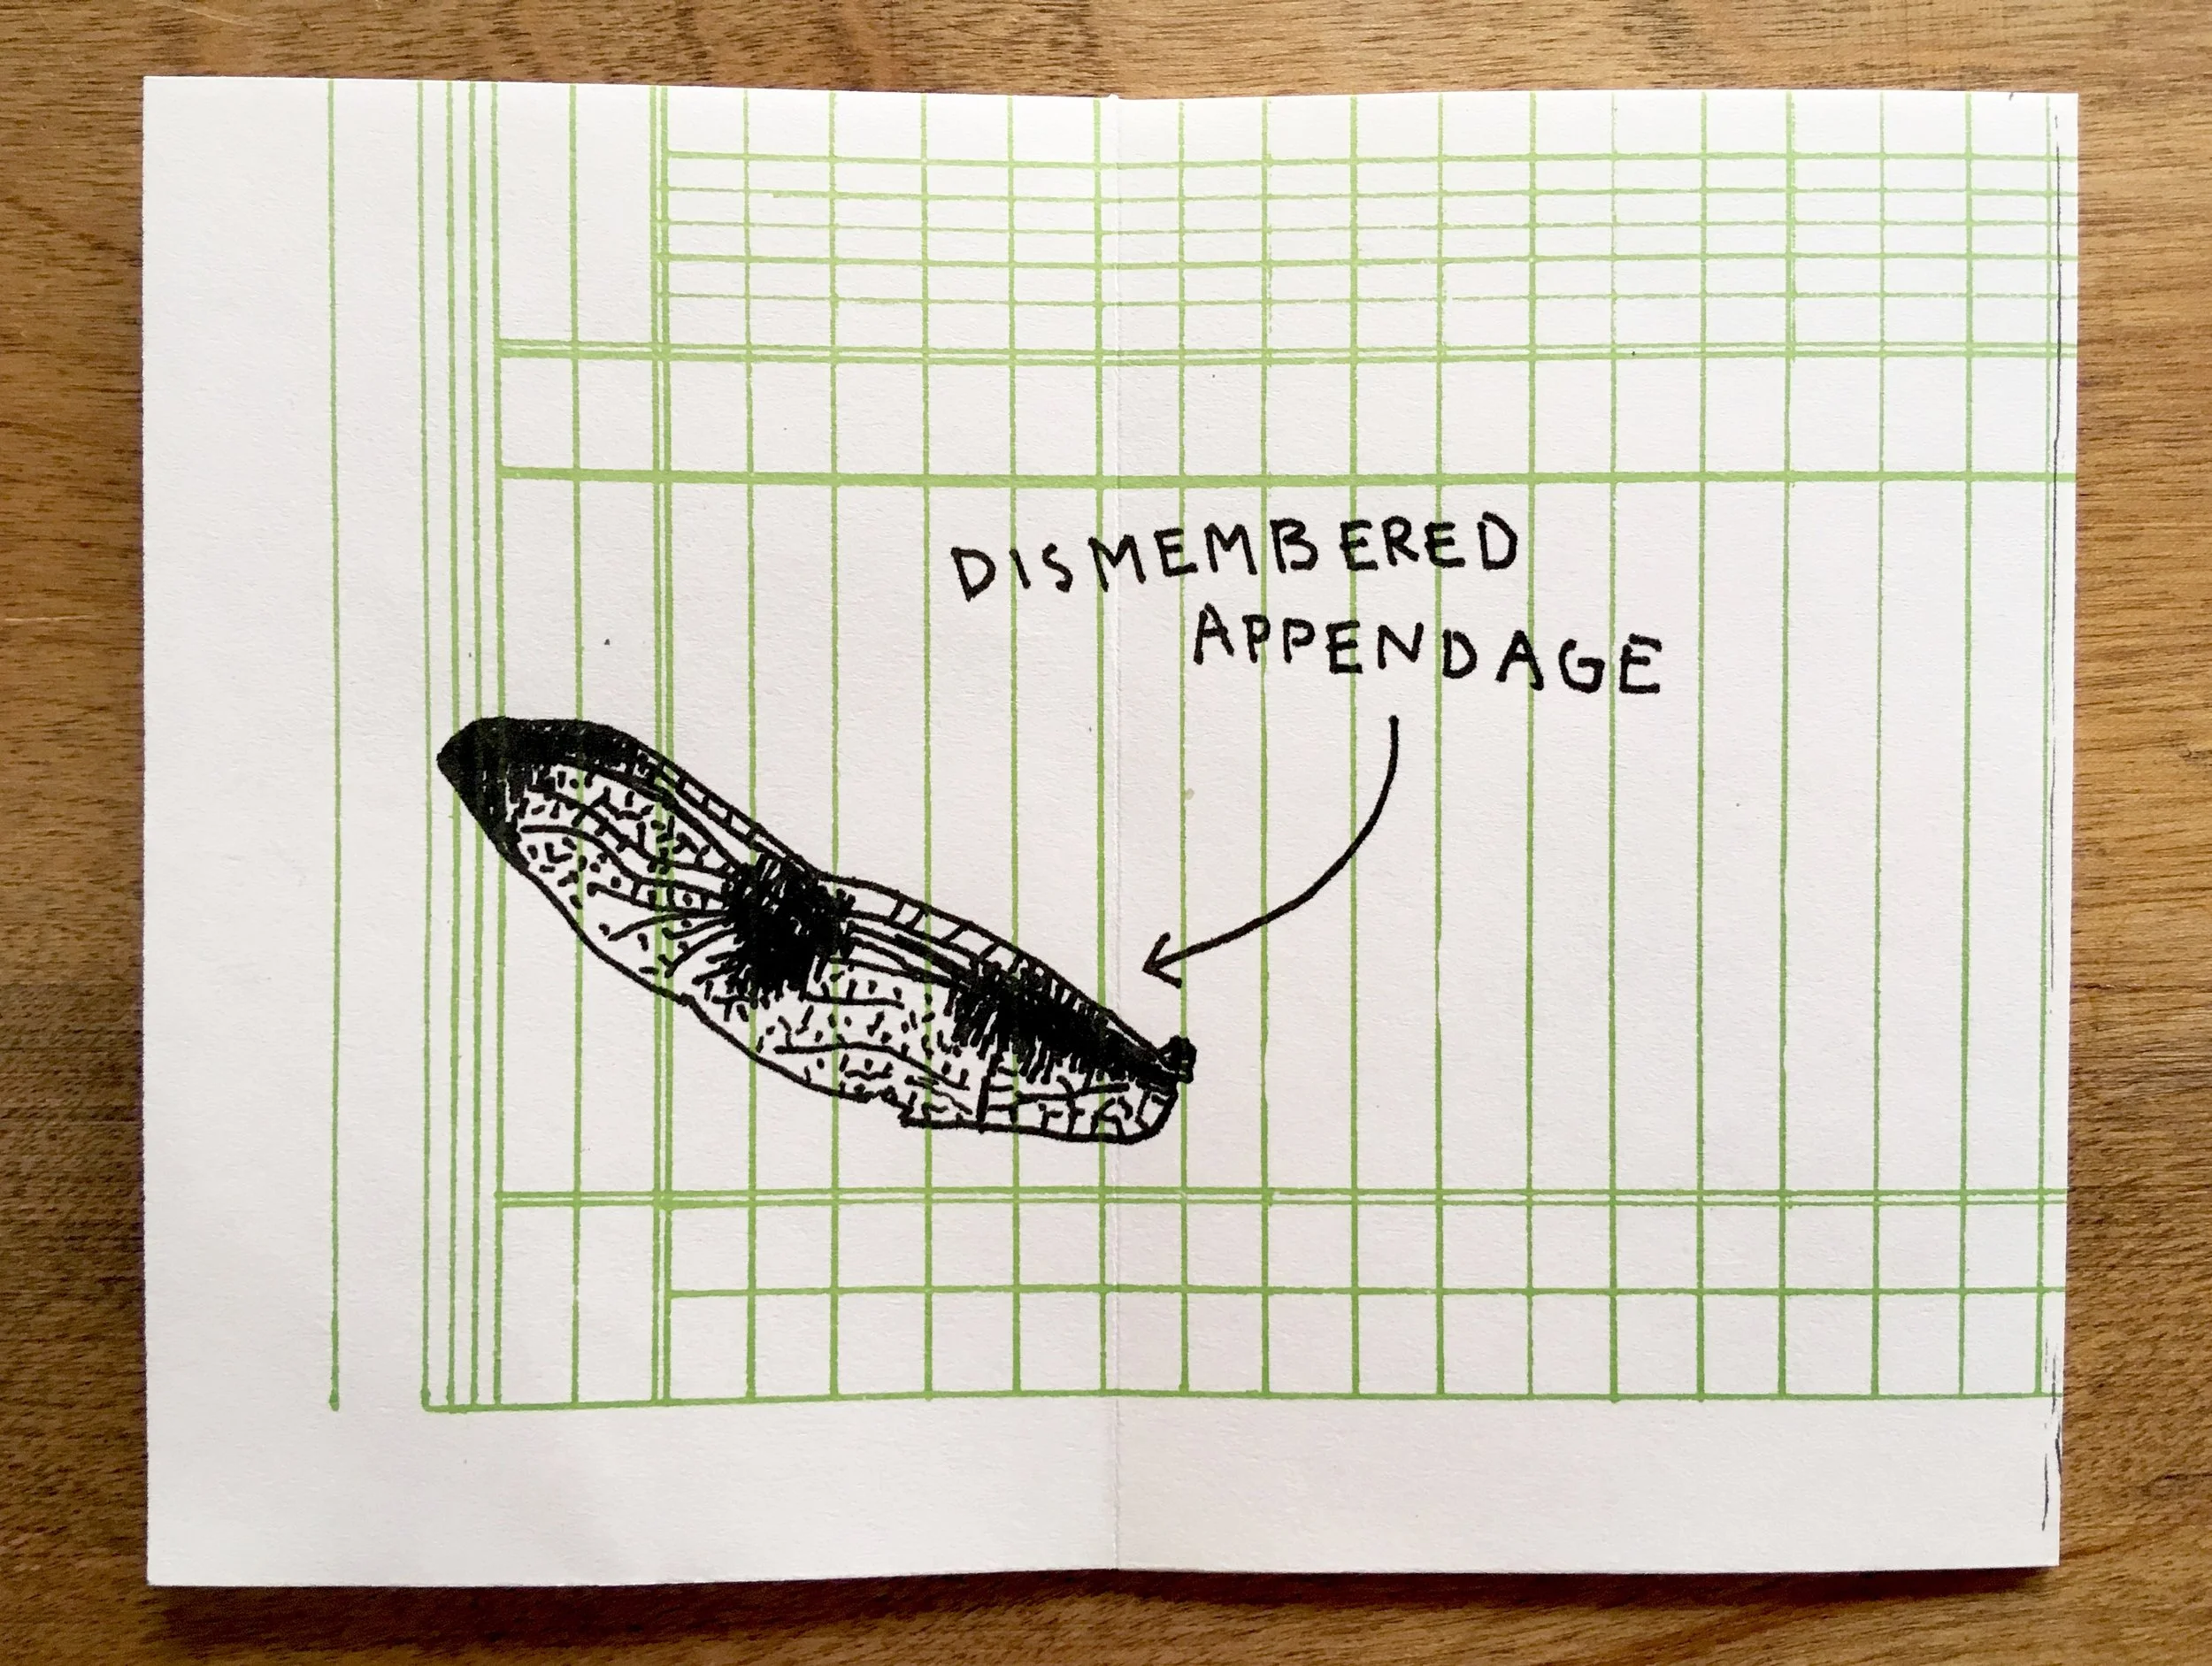 DISMEMBERED
APPENDAGE